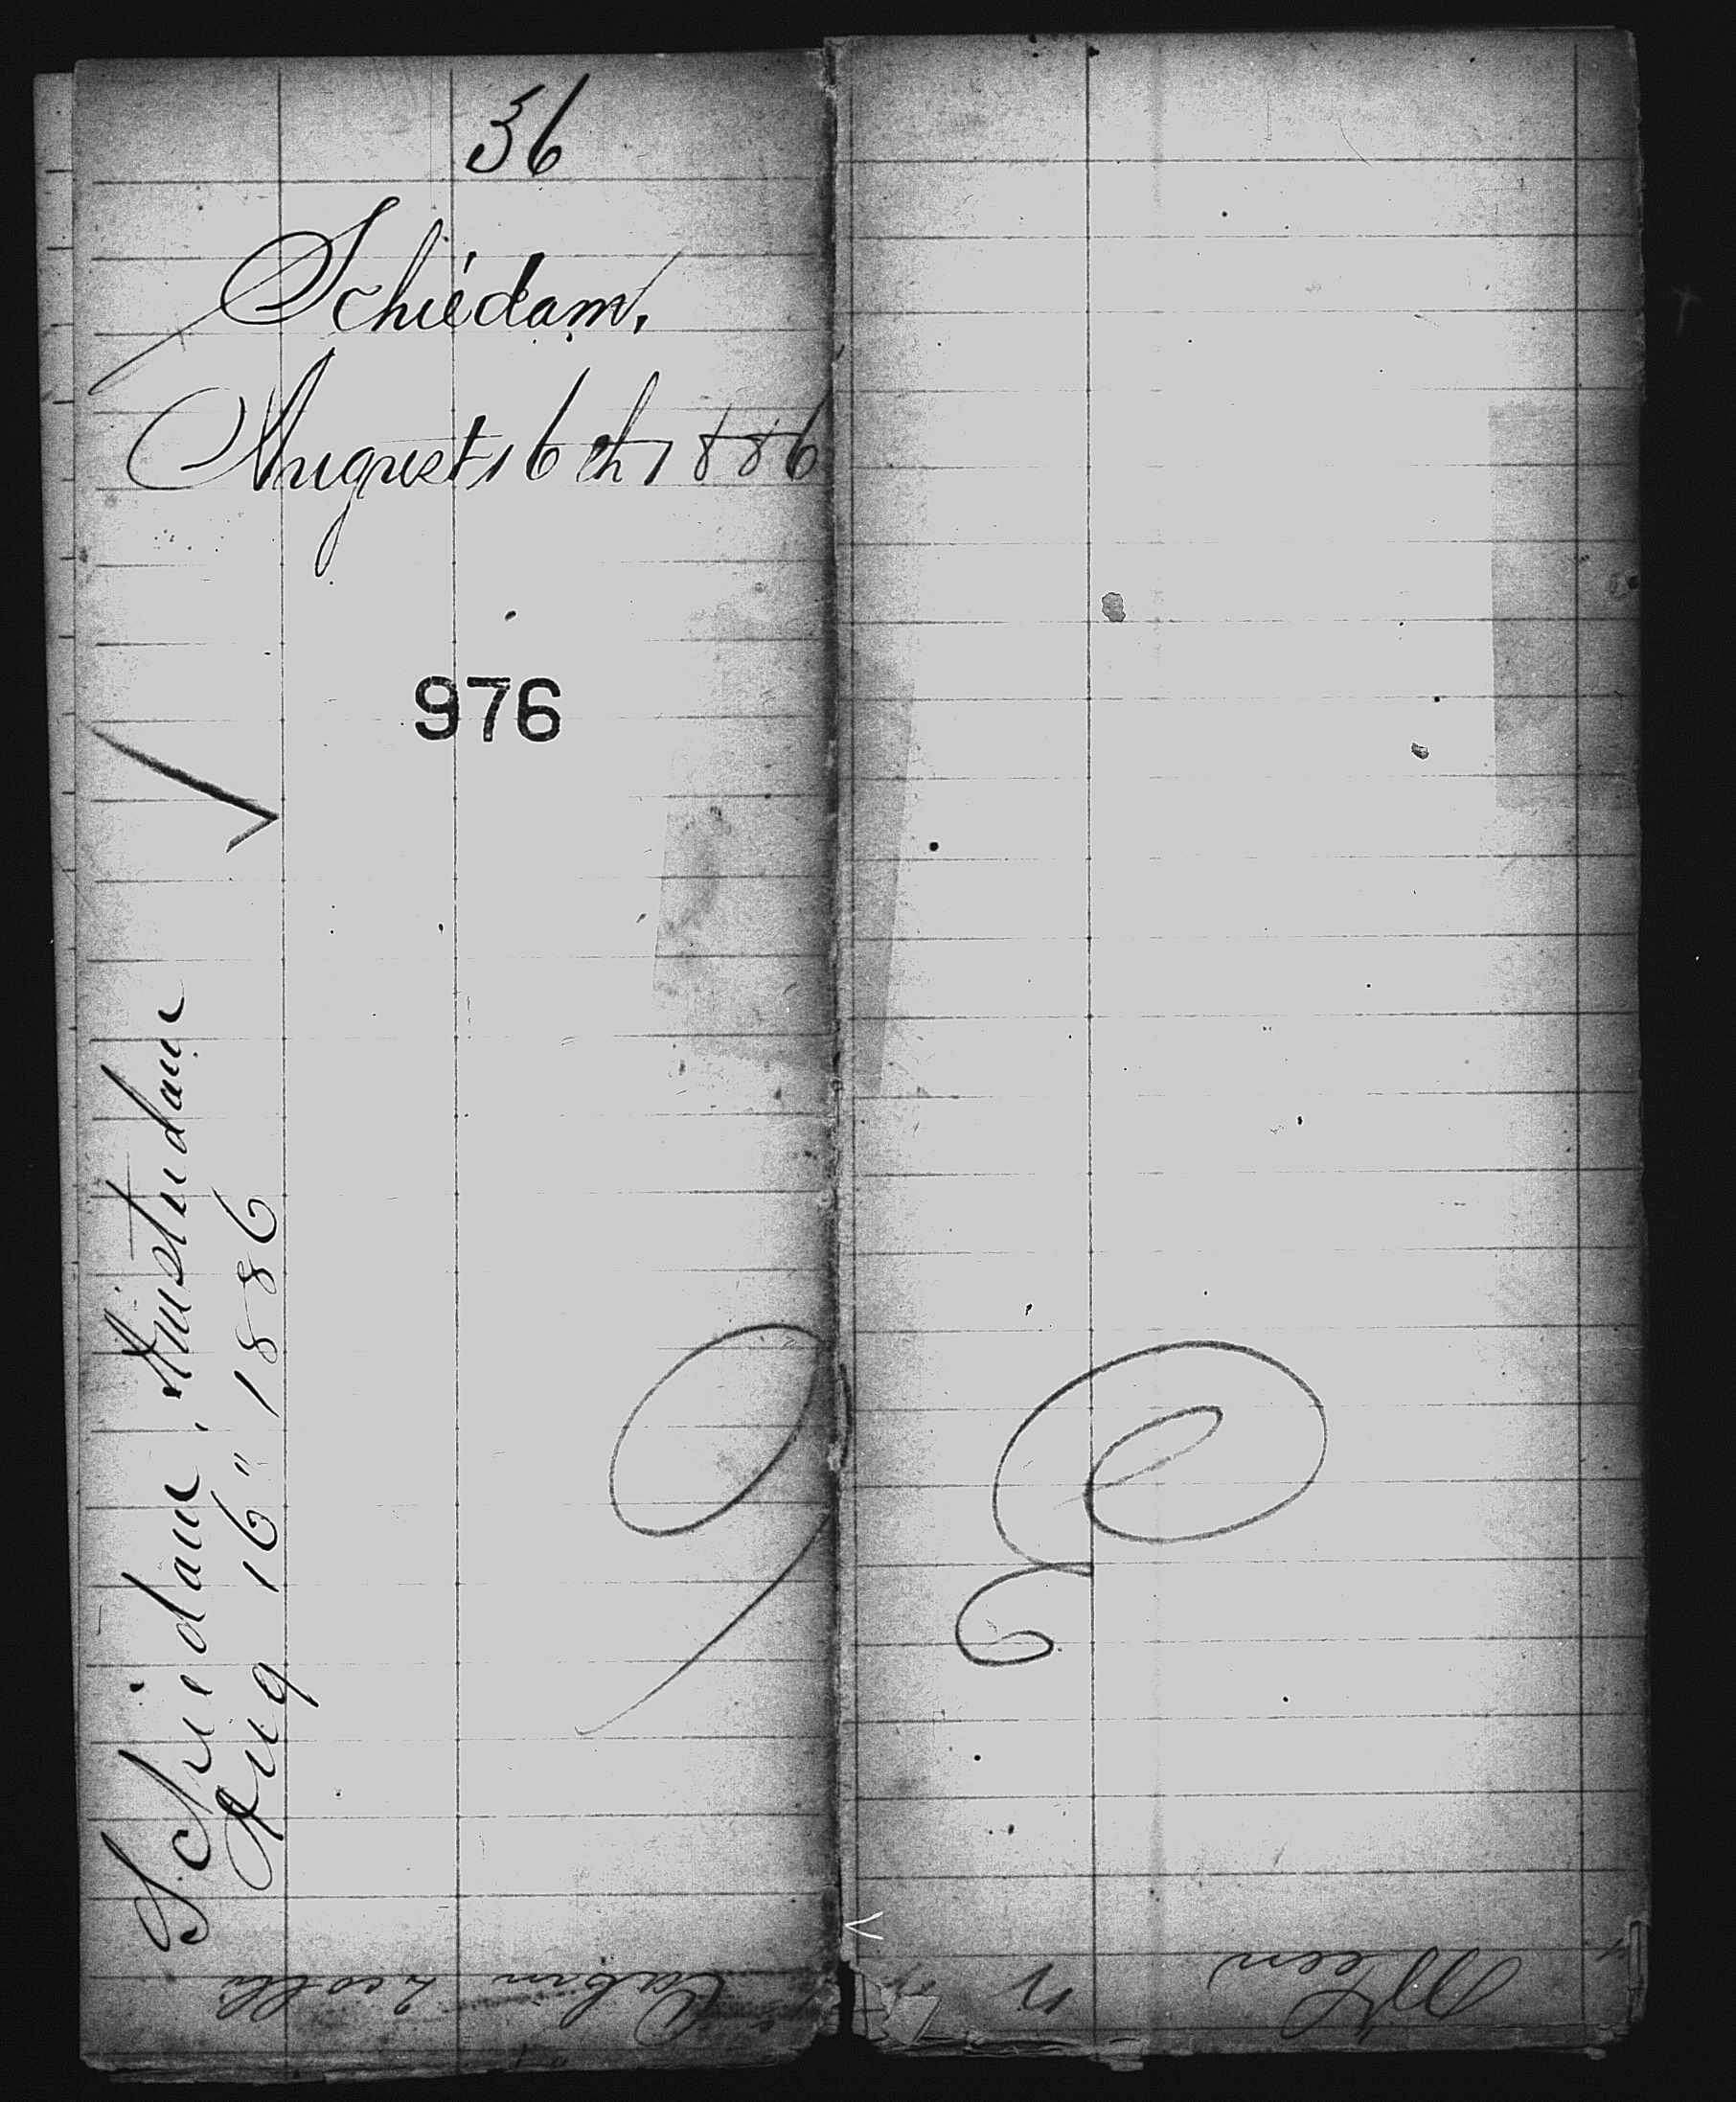 36
Schiedam,
August 16th 1886
976
Schiedam, Amsterdam
Aug 16" 1886
Cabin